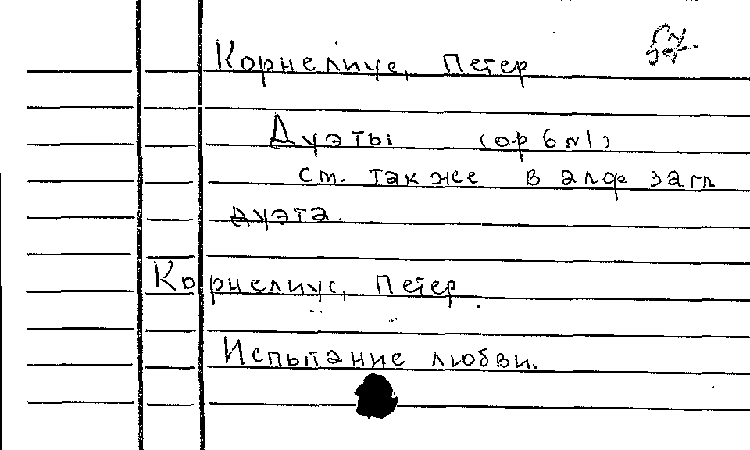 Корнелиус, Петер
Дуэты (ор 6 №1)
см. так же в алф загл
дуэта.
Корнелиус, Петер.
Испытание любви.